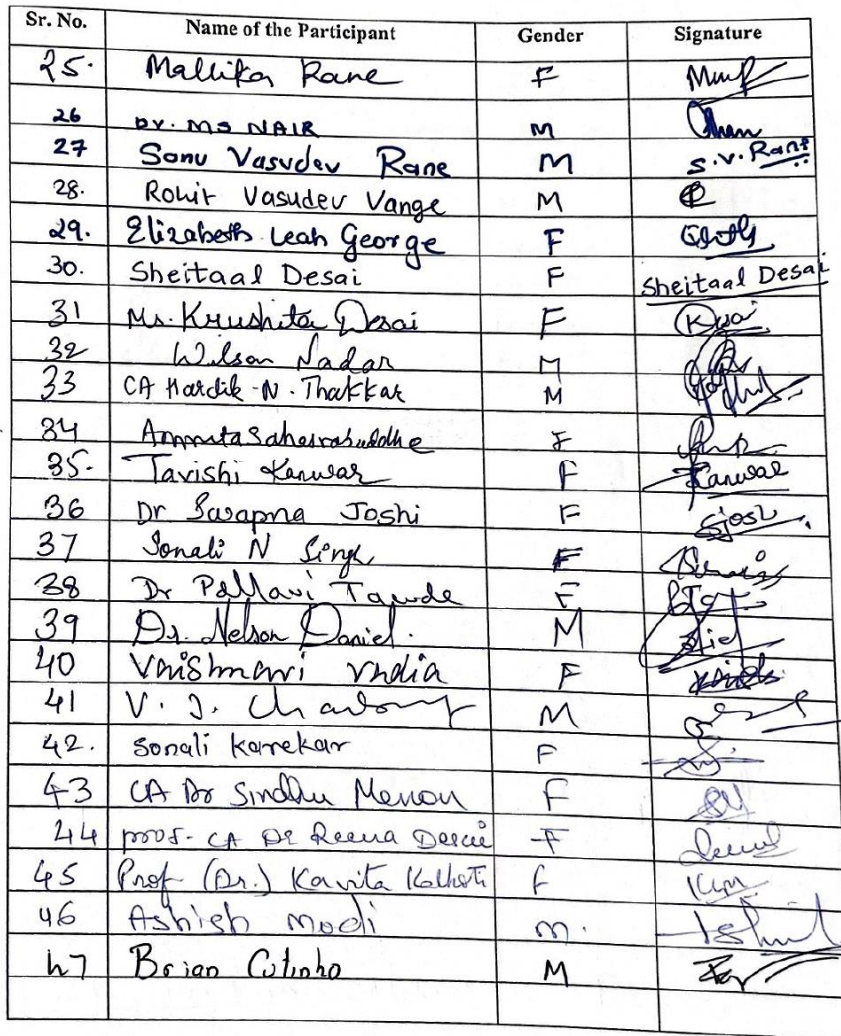 Sr. No. Name of the Participant Gender Signature
25. Mallika Rane F
26 Dr. MS NAIR M
27 Sonu Vasudev Rane M S.V. Rane
28. Rohit Vasudev Vange M
29. Elizabeth Leah George F
30. Sheitaal Desai F Sheitaal Desai
31 Ms. Krushita Desai F
32 Wilson Nadar M
33 CA Hardik N. Thakkar M
34 Amruta Sahasrabuddhe F
35. Tavishi Kanwar F Kanwar
36 Dr Swapna Joshi F
37 Sonali N Singh F
38 Dr Pallavi Tawde F
39 Dr. Nelson Daniel. M
40 Vaishnavi F
41 V. J. M
42. Sonali Karekar F
43 CA Dr Sindhu Menon F
44 Prof. CA Dr Reena Desai F
45 Prof (Dr.) Kavita Kalkoti F
46 Ashish Modi m.
47 Brian Cutinho M